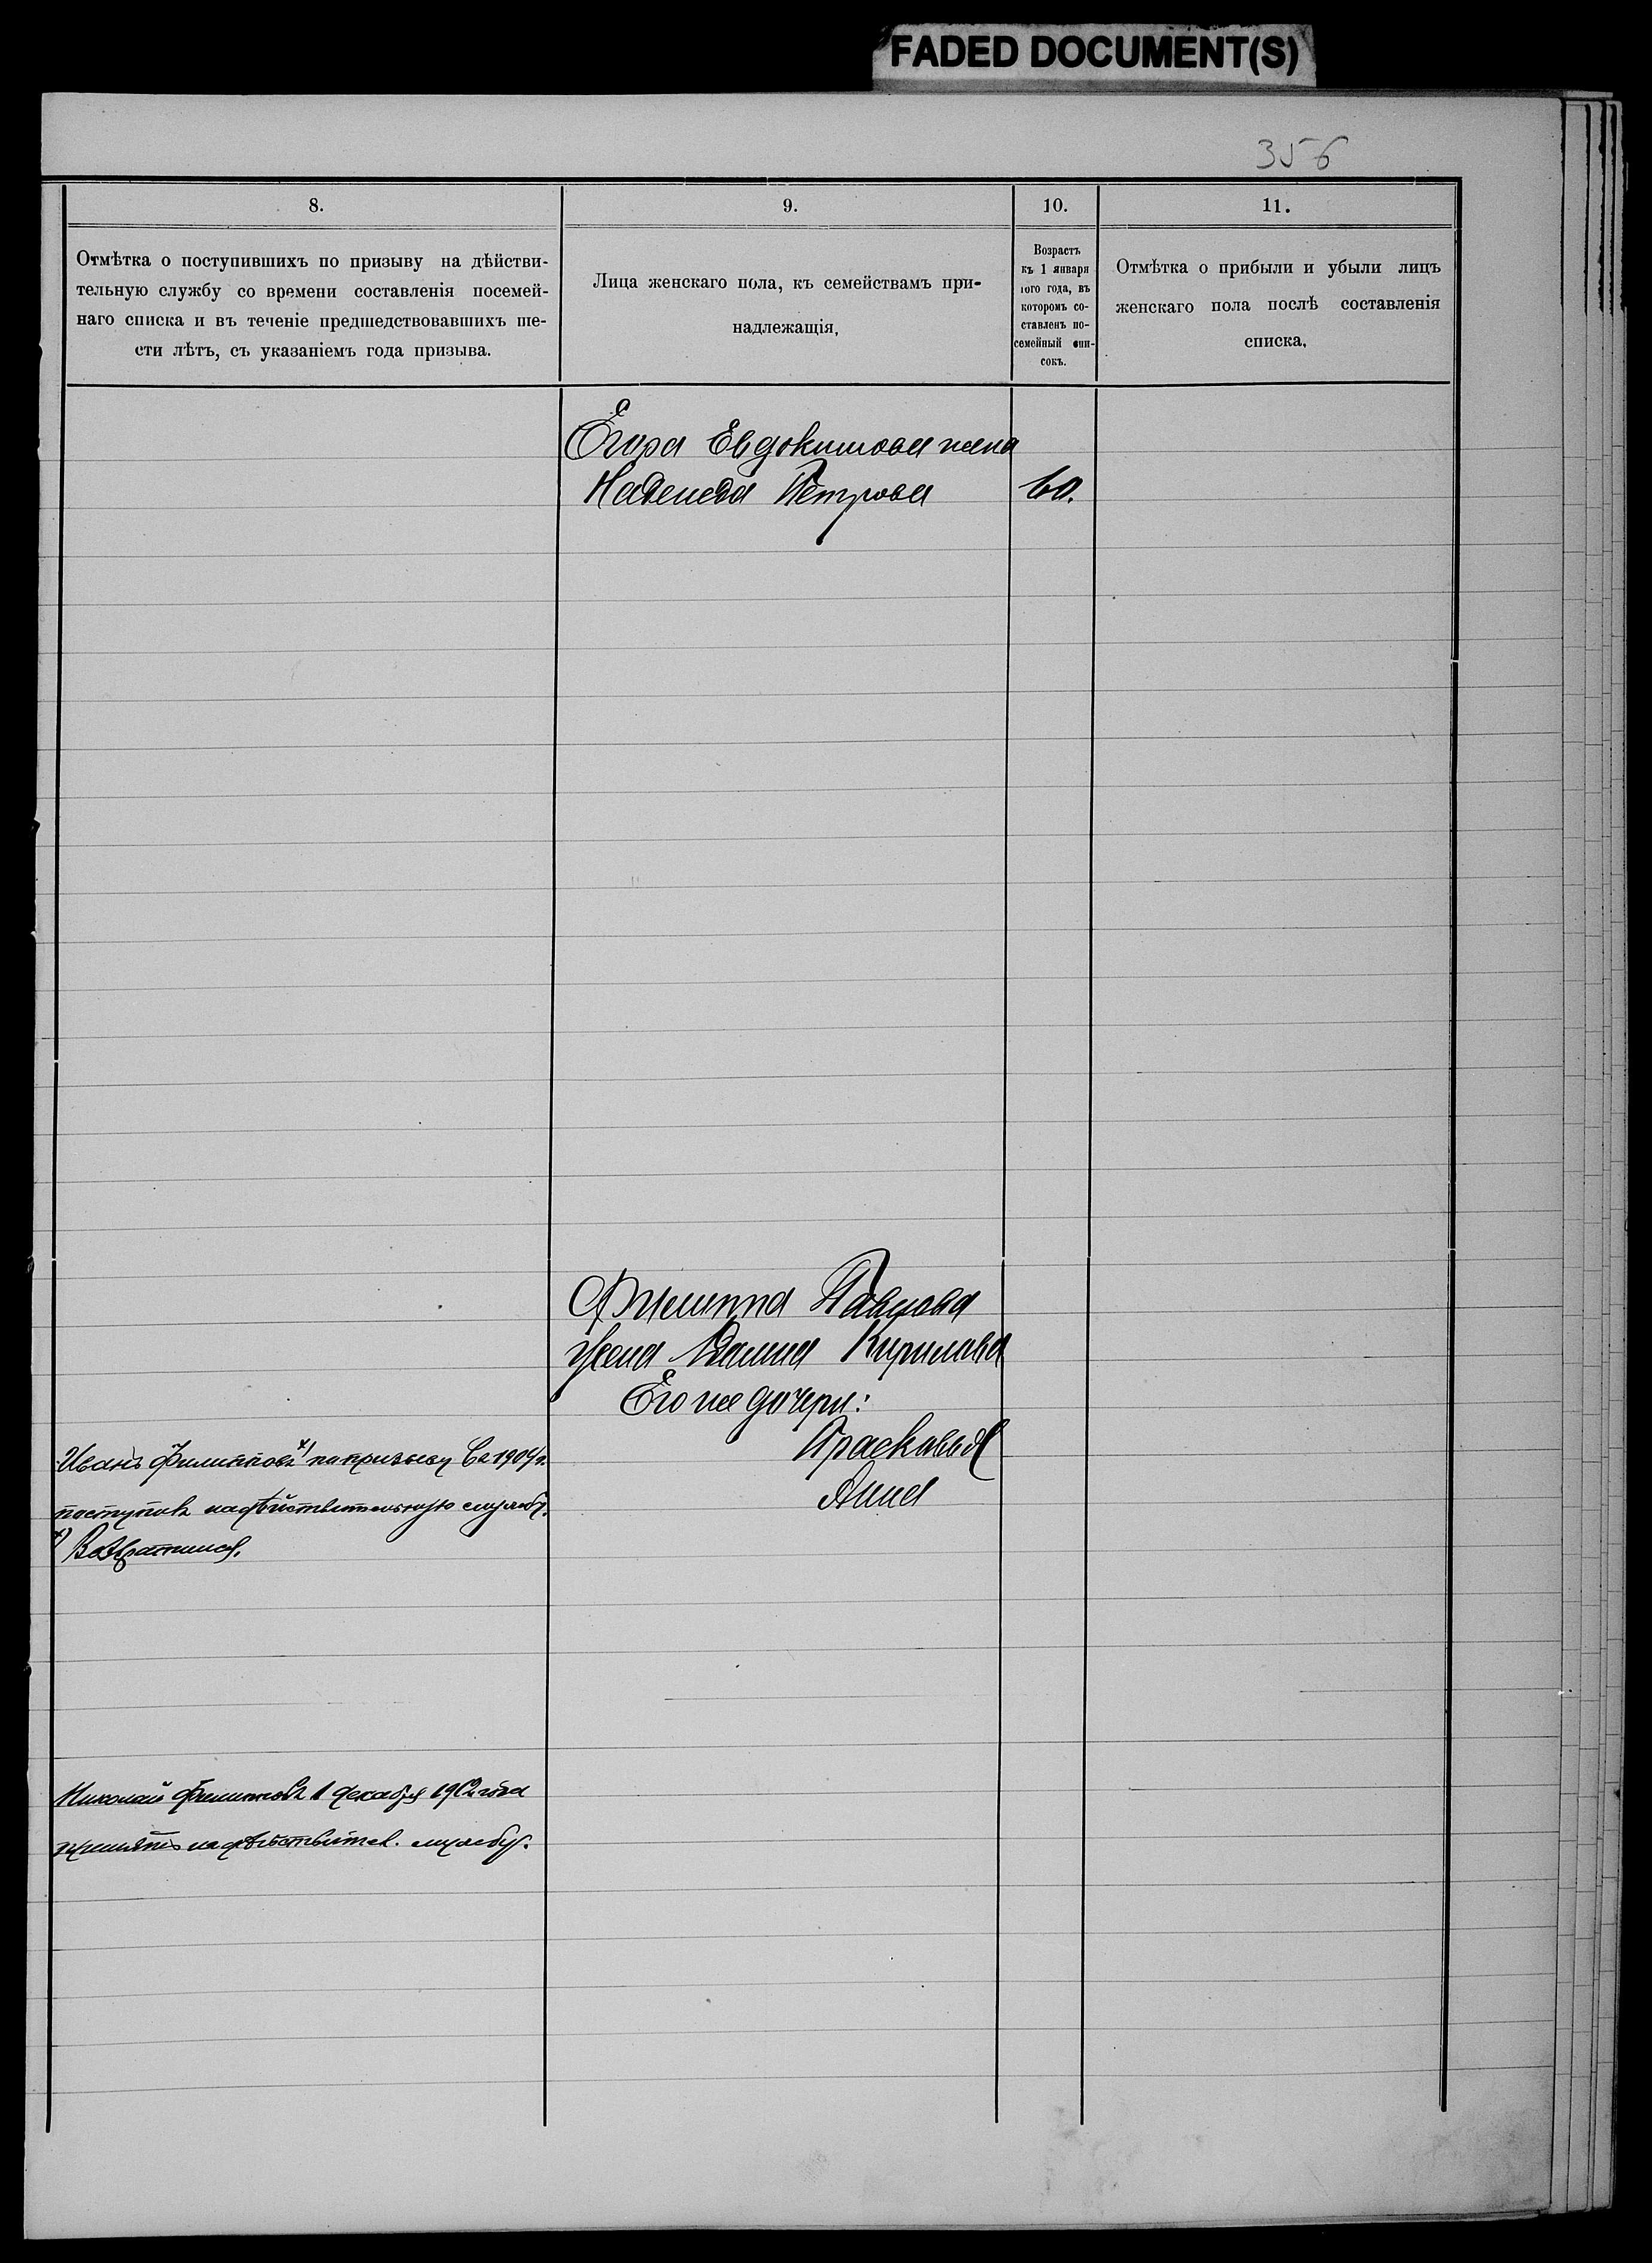 FADED DOCUMENT(S)
356
8.
Отмѣтка о поступившихъ по призыву на дѣйстви-
тельную службу со времени составленія посемей-
наго списка и въ теченіе предшедствовавшихъ ше-
сти лѣтъ, съ указаніемъ года призыва.
9.
Лица женскаго пола, къ семействамъ при-
надлежащія.
10.
Возрастъ
къ 1 января
того года, въ
которомъ со-
ставленъ по-
семейный спи-
сокъ.
11.
Отмѣтка о прибыли и убыли лицъ
женскаго пола послѣ составленія
списка.
Егора Евдокимова жена
Надежда Петрова 60.
Филиппа Павлова
жена Кирилова
Его же дочери:
Прасковья
Анна
Иванъ Филипповъ х) по призыву въ 190 г.
поступилъ на дѣйствительную службу.
х) Возвратился.
Николай Филипповъ 1 декабря 1912 года
принятъ на дѣйствител. службу.